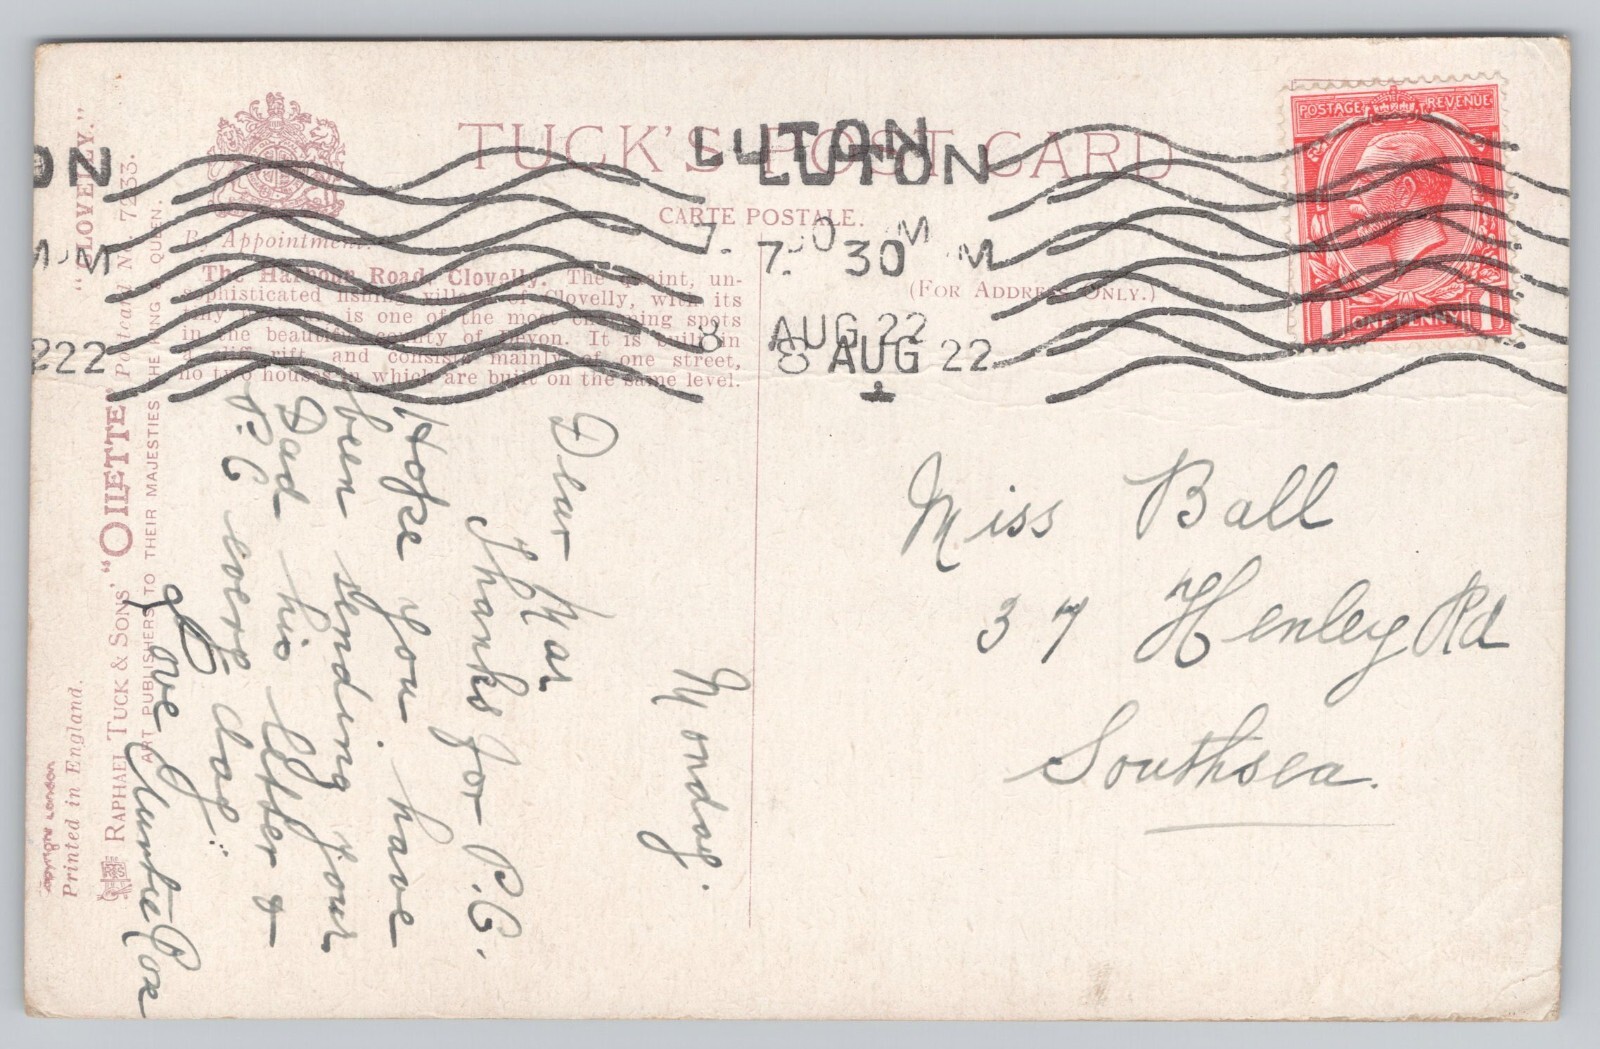 TUCK'S POST CARD
CARTE POSTALE.
(FOR ADDRESS ONLY.)
By Appointment.
The Harbour Road, Clovelly. The quaint, un-
sophisticated fishing village of Clovelly, with its
tiny is one of the most charming spots
in the beautiful county of Devon. It is built in
a cliff rift, and consists mainly of one street,
no two houses in which are built on the same level.
"CLOVELLY."
RAPHAEL TUCK & SONS' "OILETTE" Postcard No. 7233.
ART PUBLISHERS TO THEIR MAJESTIES THE KING & QUEEN.
Copyright London
Printed in England.
ON
M
222
LUTON
7. 0 M
8 AUG 22
LUTON
7. 30 M
8 AUG 22
POSTAGE REVENUE
1 ONE PENNY 1
Monday.
Dear Mar
Thanks for P.C.
Hope you have
been sending your
Dad his letter &
P.C every day:
Love Auntie Pox
Miss Ball
37 Henley Rd
Southsea.